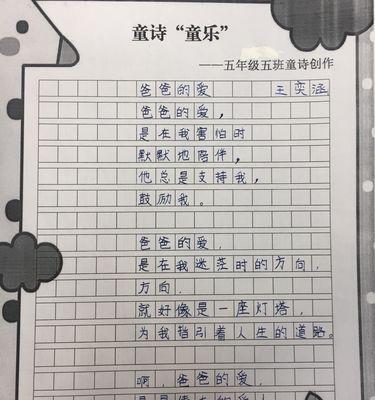 童诗“童乐”
——五年级五班童诗创作
爸爸的爱 王奕涵
爸爸的爱，
是在我害怕时
默默地陪伴，
他总是支持我，
鼓励我。
爸爸的爱，
是在我迷茫时的方向，
方向，
就好像是一座灯塔，
为我指引着人生的道路。
啊，爸爸的爱，